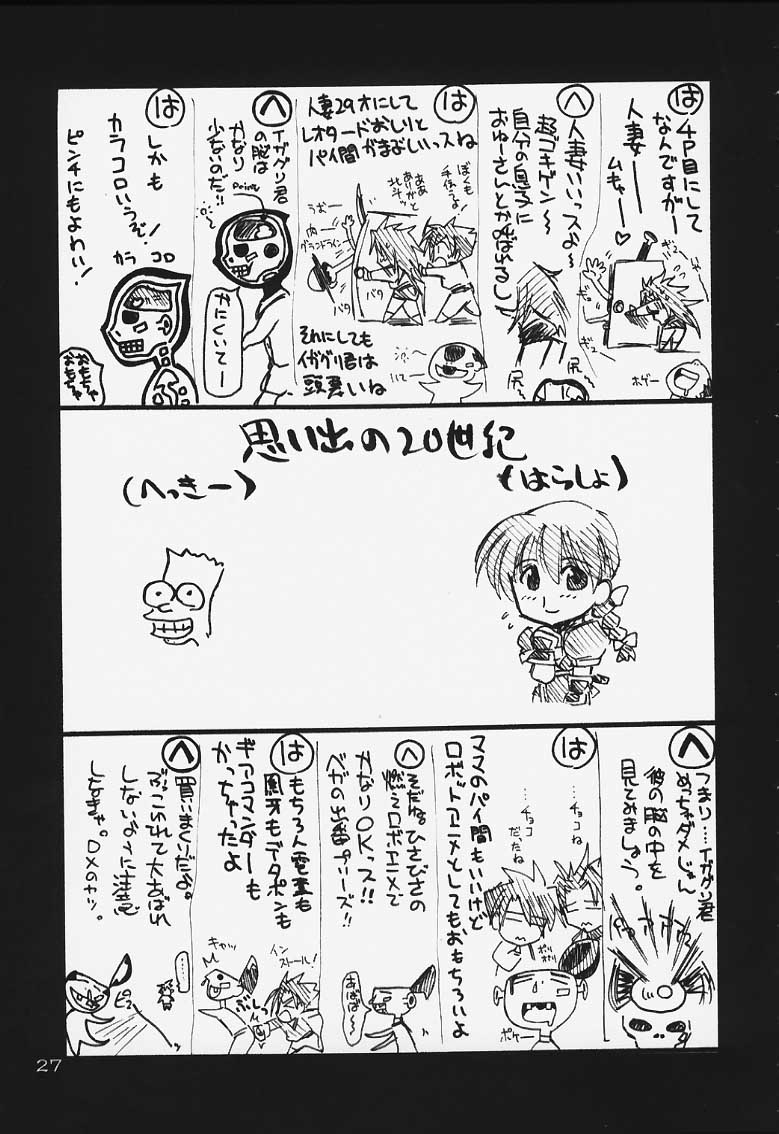 は
4P目にして
なんですがー
人妻ーー
ムキャー♡
ギュ
ギュー
ホゲー
へ
人妻いいっスよ〜
超ゴキゲン〜
自分の息子に
おゅーさんとか呼ばれるし
尻
尻
は
人妻29才にして
レオタードおしりと
パイ間がまぶしいっスね
ぼくも
手伝うよ!
ああ
ありがと
北斗
うおー
グランドライン
バタ
バタ
それにしても
イガグリ君は
頭悪いね
へ
イガグリ君
の脳は
かなり
少ないのだ!!
Point
かにくいてー
は
しかも
カラコロいうぞ!
ピンチにもよわい!
カラ コロ
おもちゃ
おもちゃ
思い出の20世紀
(はらしょ)
(へっきー)
へ
つまり…イガグリ君
めっちゃダメじゃん
彼の脳の中を
見てみましょう。
は
ママのパイ間もいいけど
ロボットアニメとしてもおもちろいよ
…チョコね
…チョコ
だったね
ポリ
ポリ
ポケー
へ
そだねひさびさの
燃えロボアニメで
かなりOKっス!!
ベガの出番プリーズ!!
あばば〜
は
もちろん電童も
凰牙もデータポンも
ギアコマンダーも
かっちゃったよ
インストール!
キャッ
へ
買いまくりだよ。
ぶっこわれて大あばれ
しないように注意
しなきゃ。DXのヤツ。
……
ピュー
27